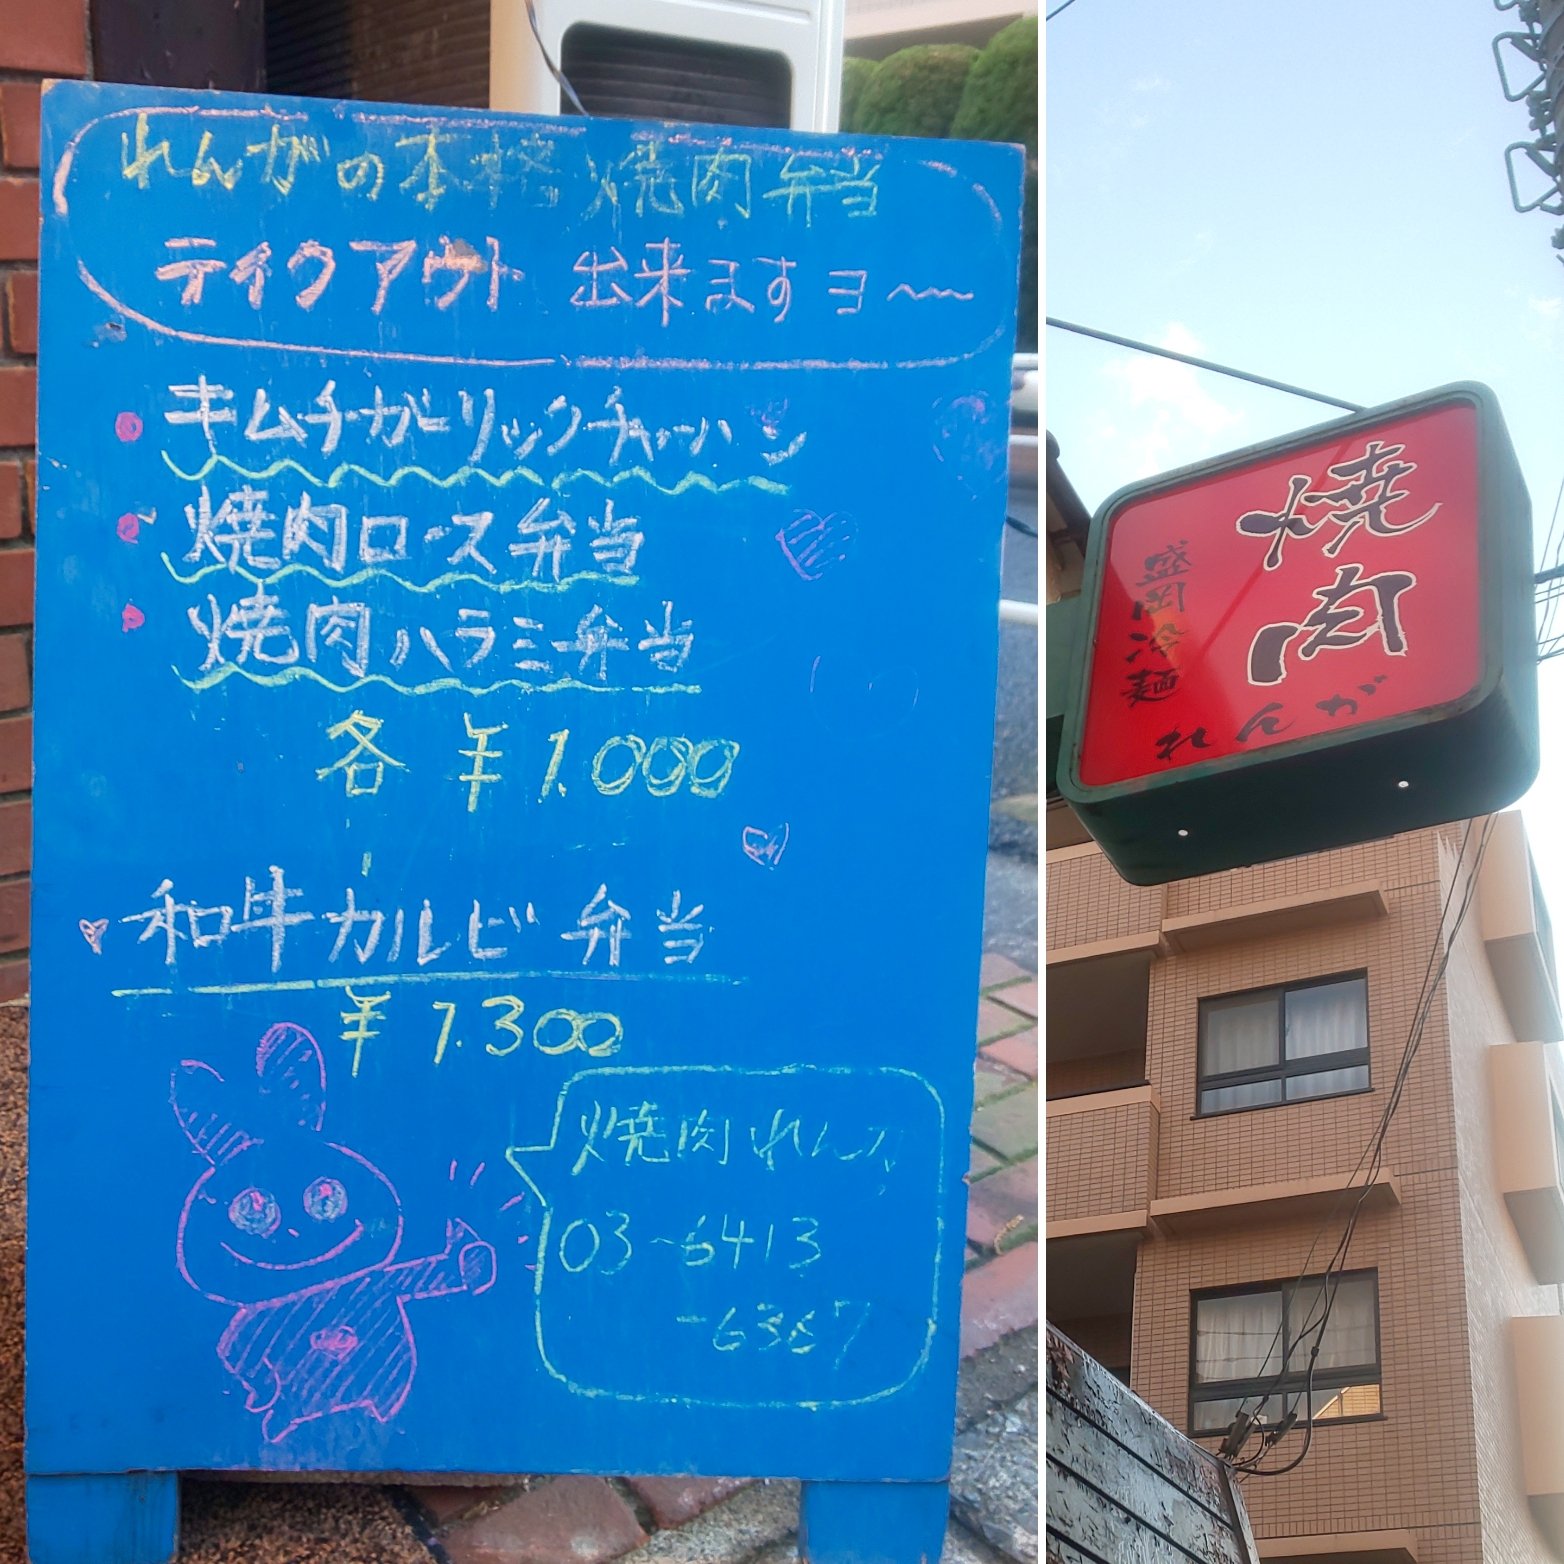 れんがの本格焼肉弁当
テイクアウト 出来ますヨ〜
・キムチガーリックチャーハン
・焼肉ロース弁当
・焼肉ハラミ弁当
各 ¥1.000
和牛カルビ弁当
¥1.300
焼肉れんが
03-6413
-6367
焼肉
盛岡冷麺
れんが